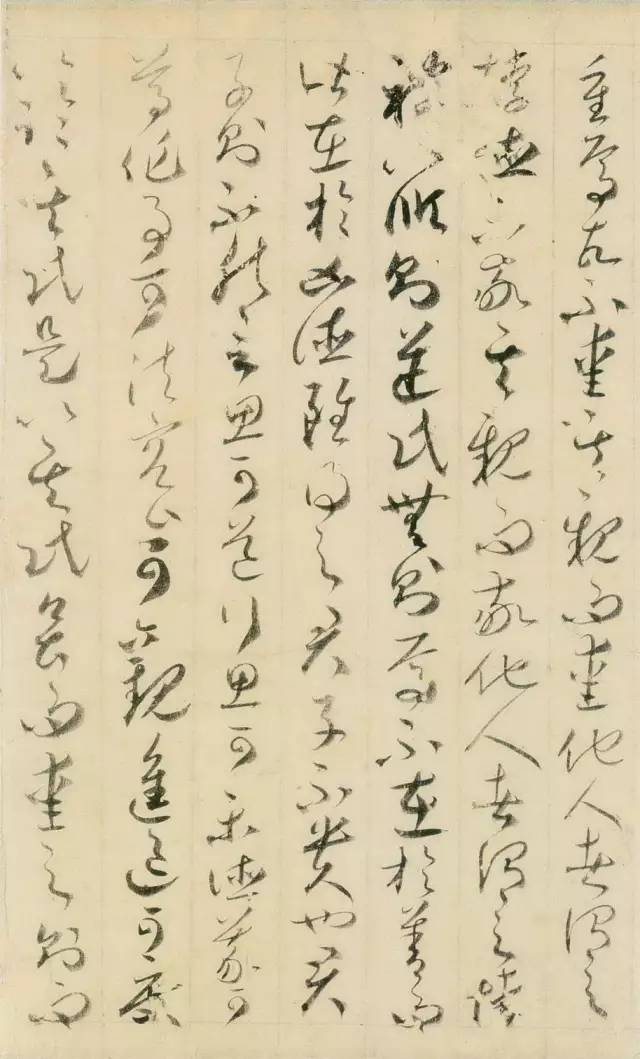 重焉故不愛其親而愛他人者謂之
悖德不敬其親而敬他人者謂之悖
禮以順則逆民無則焉不在於善而
皆在於凶德雖得之君子不貴也君
子則不然言思可道行思可樂德義可
尊作事可法容止可觀進退可度
以臨其民是以其民畏而愛之則而